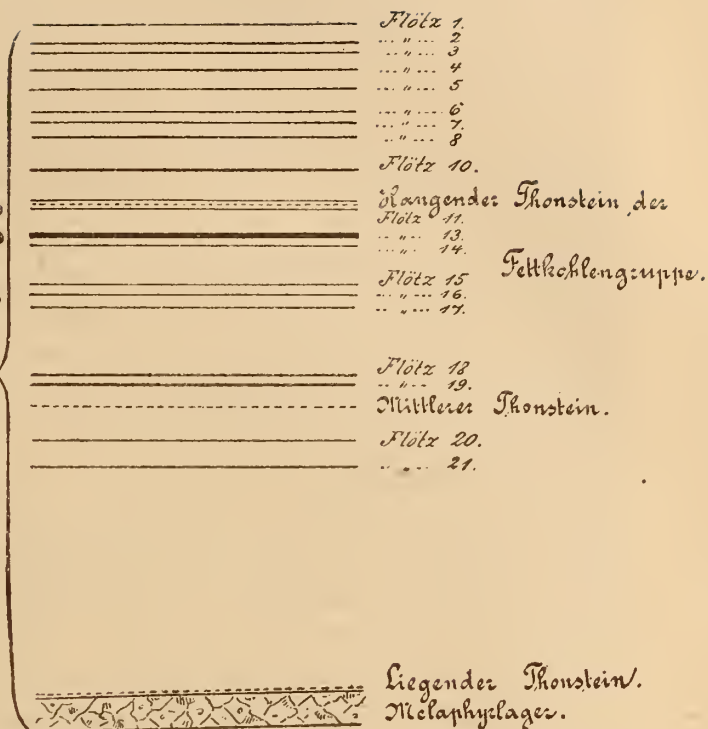 Flötz 1.
... " ... 2
... " ... 3
... " ... 4
... " ... 5
... " ... 6
... " ... 7.
... " ... 8
Flötz 10.
Hangender Thonstein der
Flötz 11.
... " ... 13.
... " ... 14.
Fettkohlengruppe.
Flötz 15
... " ... 16.
... " ... 17.
Flötz 18
... " ... 19.
Mittlerer Thonstein.
Flötz 20.
... " ... 21.
Liegender Thonstein.
Melaphyrlager.